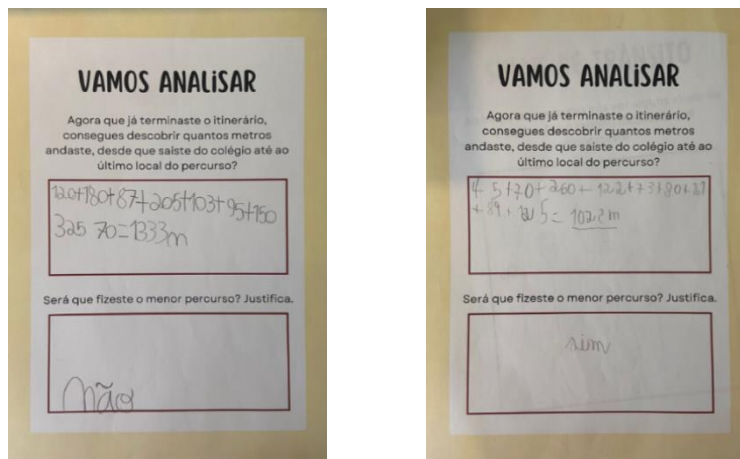 VAMOS ANALISAR
Agora que já terminaste o itinerário,
consegues descobrir quantos metros
andaste, desde que saiste do colégio até ao
último local do percurso?
120+180+87+205+103+95+150
325 70=1333m
Será que fizeste o menor percurso? Justifica.
não
VAMOS ANALISAR
Agora que já terminaste o itinerário,
consegues descobrir quantos metros
andaste, desde que saiste do colégio até ao
último local do percurso?
5+70+260+122+73+80+
Será que fizeste o menor percurso? Justifica.
sim